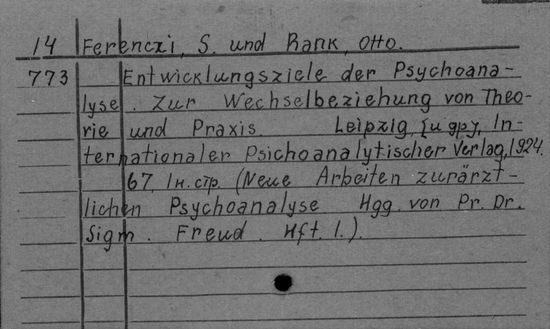 14 Ferenczi, S. und Rank, Otto.
773 Entwicklungsziele der Psychoana-
lyse. Zur Wechselbeziehung von Theo-
rie und Praxis Leipzig, [u gp], In-
ternationaler Psichoanalytischer Verlag, 1924.
67, 1 н. стр. (Neue Arbeiten zurärzt-
lichen Psychoanalyse Hgg. von Pr. Dr.
Sigm. Freud. Hft. 1.).